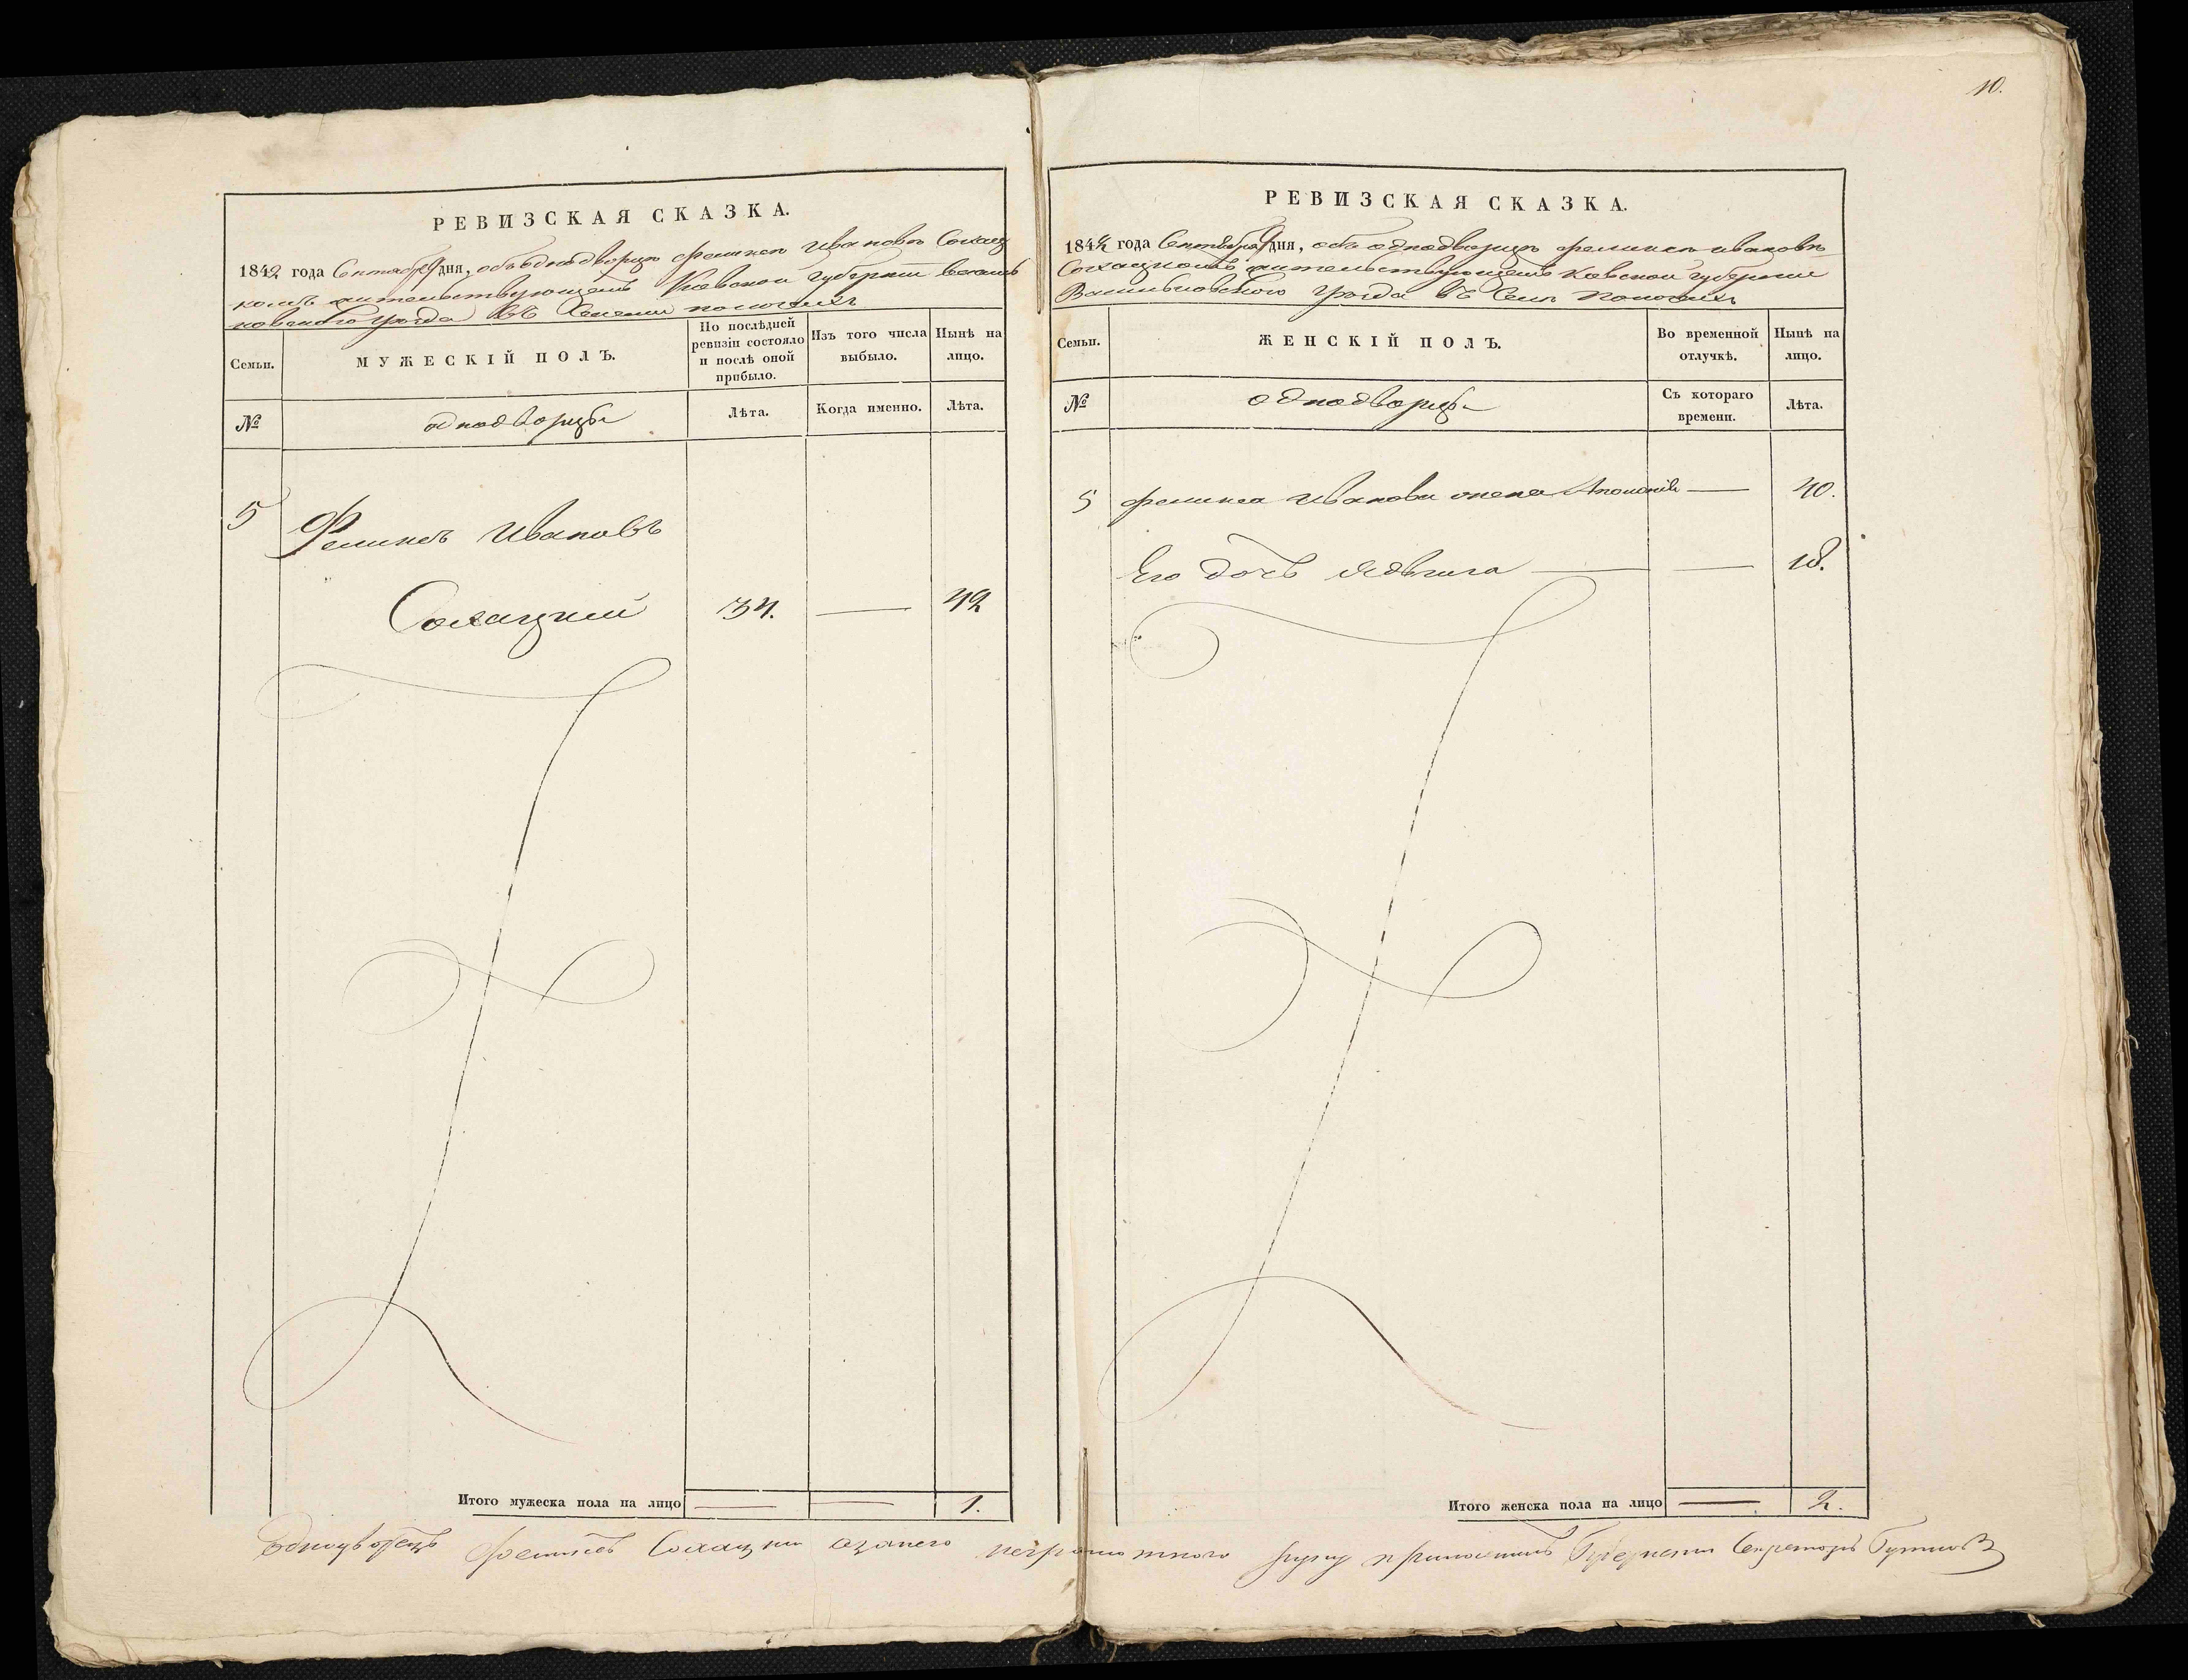 10.
РЕВИЗСКАЯ СКАЗКА.
1842 года Сентября 9 дня, объ однодворце Феликсе Иванове Сохац
комъ жительствующемъ Киевской губернии Василь
ковскаго уезда въ Селении
Семьи.
МУЖЕСКІЙ ПОЛЪ.
По послѣдней ревизіи состояло и послѣ оной прибыло.
Изъ того числа выбыло.
Нынѣ на лицо.
№
однодворцы
Лѣта.
Когда именно.
Лѣта.
5 Феликсъ Ивановъ
Сохацкий 34. — 42
Итого мужеска пола на лицо — — 1.
РЕВИЗСКАЯ СКАЗКА.
1842 года Сентября 9 дня, объ однодворце Феликсе Иванове
Сохацкомъ жительствующемъ Киевской губернии
Васильковского уезда въ Селе
Семьи.
ЖЕНСКІЙ ПОЛЪ.
Во временной отлучкѣ.
Нынѣ на лицо.
№
однодворцы
Съ котораго времени.
Лѣта.
5 Феликса Иванова жена Аполония — 40.
Его дочь Ядвига — — 18.
Итого женска пола на лицо — 2.
Однодворецъ Феликсъ Сохацкий а за него неграмотного руку приложилъ Губернский Секретарь